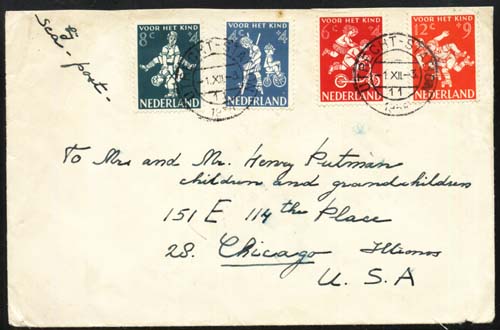 VOOR HET KIND
8c +4
NEDERLAND
VOOR HET KIND
4c +4
NEDERLAND
VOOR HET KIND
6c +4
NEDERLAND
VOOR HET KIND
12c +9
NEDERLAND
1.XII-3
11
1958
1.XII-3
11
1958
Sea-post-
To Mrs and Mr. Henry Putman
children and grandchildren
151 E 114 the Place
28. Chicago Illionos
U. S. A